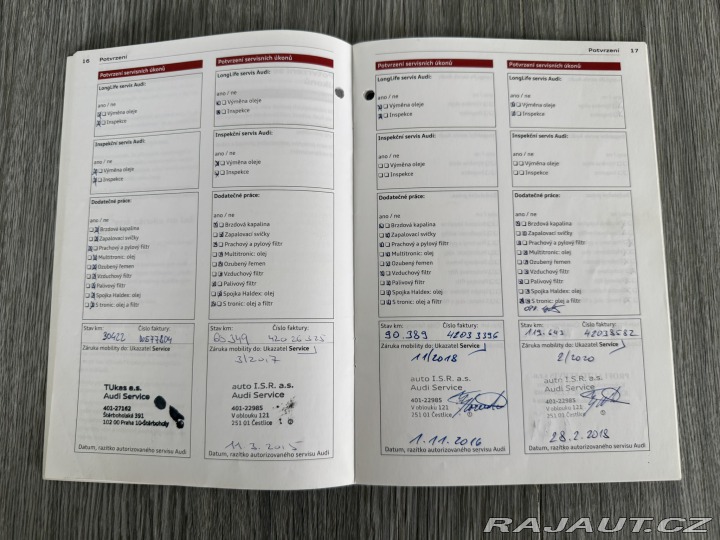 16 Potvrzení
Potvrzení servisních úkonů
LongLife servis Audi:
ano / ne
Výměna oleje
Inspekce
Inspekční servis Audi:
ano / ne
Výměna oleje
Inspekce
Dodatečné práce:
ano / ne
Brzdová kapalina
Zapalovací svíčky
Prachový a pylový filtr
Multitronic: olej
Ozubený řemen
Vzduchový filtr
Palivový filtr
Spojka Haldex: olej
S tronic: olej a filtr
Stav km: Číslo faktury:
30422
Záruka mobility do: Ukazatel Service
TUkas a.s.
Audi Service
401-27162
Štěrboholská 391
102 00 Praha 10-Štěrboholy
Datum, razítko autorizovaného servisu Audi
Potvrzení servisních úkonů
LongLife servis Audi:
ano / ne
Výměna oleje
Inspekce
Inspekční servis Audi:
ano / ne
Výměna oleje
Inspekce
Dodatečné práce:
ano / ne
Brzdová kapalina
Zapalovací svíčky
Prachový a pylový filtr
Multitronic: olej
Ozubený řemen
Vzduchový filtr
Palivový filtr
Spojka Haldex: olej
S tronic: olej a filtr
Stav km: Číslo faktury:
60349 42026325
Záruka mobility do: Ukazatel Service
3/2017
auto I.S.R. a.s.
Audi Service
401-22985
V oblouku 121
251 01 Čestlice
11.3.2015
Datum, razítko autorizovaného servisu Audi
Potvrzení 17
Potvrzení servisních úkonů
LongLife servis Audi:
ano / ne
Výměna oleje
Inspekce
Inspekční servis Audi:
ano / ne
Výměna oleje
Inspekce
Dodatečné práce:
ano / ne
Brzdová kapalina
Zapalovací svíčky
Prachový a pylový filtr
Multitronic: olej
Ozubený řemen
Vzduchový filtr
Palivový filtr
Spojka Haldex: olej
S tronic: olej a filtr
Stav km: Číslo faktury:
90.389 42033396
Záruka mobility do: Ukazatel Service
11/2018
auto I.S.R. a.s.
Audi Service
401-22985
V oblouku 121
251 01 Čestlice
1.11.2016
Datum, razítko autorizovaného servisu Audi
Potvrzení servisních úkonů
LongLife servis Audi:
ano / ne
Výměna oleje
Inspekce
Inspekční servis Audi:
ano / ne
Výměna oleje
Inspekce
Dodatečné práce:
ano / ne
Brzdová kapalina
Zapalovací svíčky
Prachový a pylový filtr
Multitronic: olej
Ozubený řemen
Vzduchový filtr
Palivový filtr
Spojka Haldex: olej
S tronic: olej a filtr
Stav km: Číslo faktury:
42038682
Záruka mobility do: Ukazatel Service
2/2020
auto I.S.R. a.s.
Audi Service
401-22985
V oblouku 121
251 01 Čestlice
28.2.2018
Datum, razítko autorizovaného servisu Audi
RAJAUT.CZ